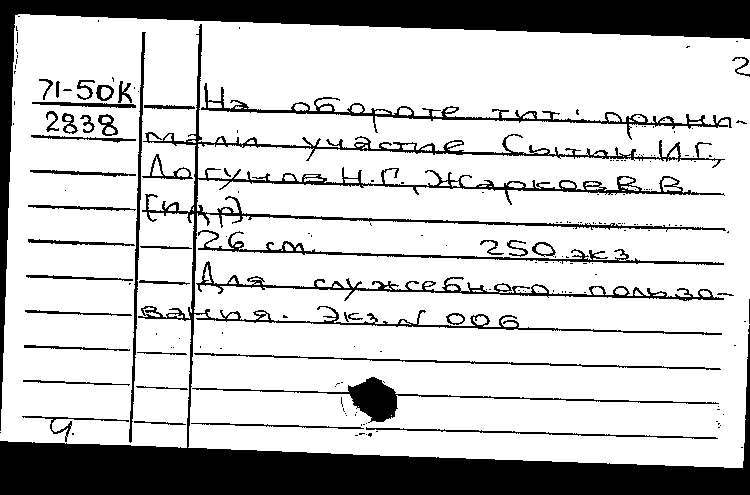 2
71-50К На обороте тит.: прини-
2838 мали участие Сытин И.Г.,
Логунов Н.Г., Жарков В.В.
[и др].
26 см. 250 экз.
Для служебного пользо-
вания. Экз. N 006
ч